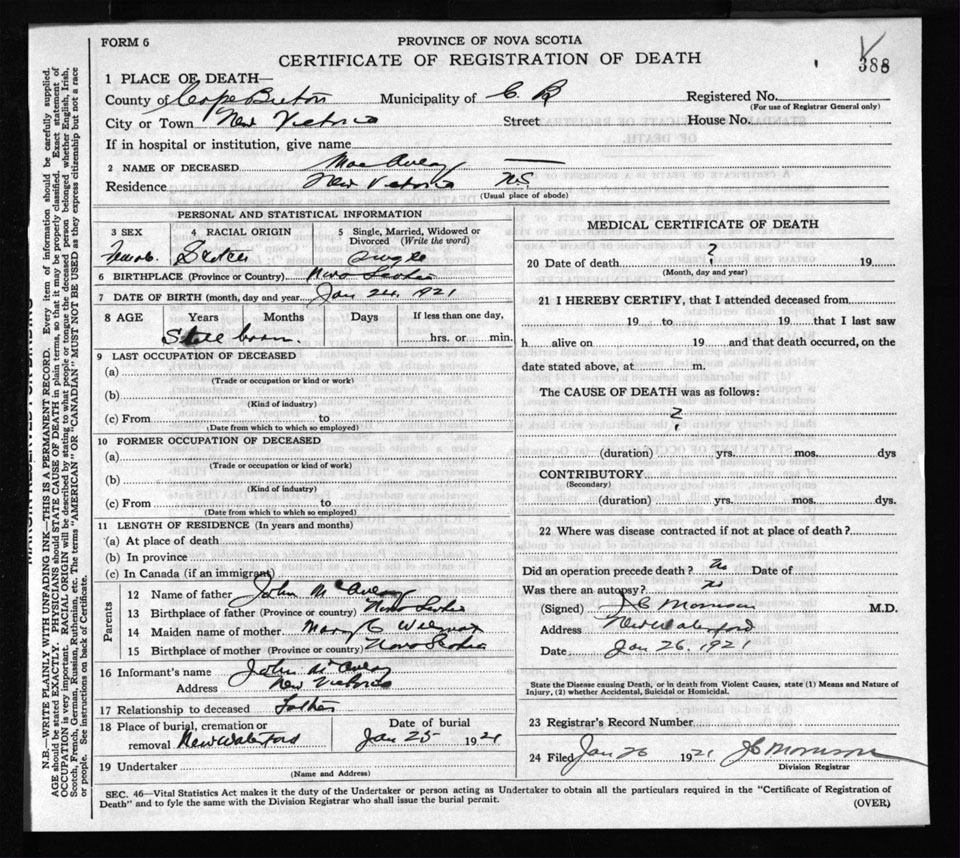 FORM 6
PROVINCE OF NOVA SCOTIA
CERTIFICATE OF REGISTRATION OF DEATH
388
1 PLACE OF DEATH—
County of Cape Breton Municipality of C. B
Registered No.
(For use of Registrar General only)
City or Town New Victoria Street House No.
If in hospital or institution, give name
2 NAME OF DECEASED Mac Avoy
Residence New Victoria N.S.
(Usual place of abode)
PERSONAL AND STATISTICAL INFORMATION
3 SEX 4 RACIAL ORIGIN 5 Single, Married, Widowed or
Divorced (Write the word)
Female Scotch Single
6 BIRTHPLACE (Province or Country) Nova Scotia
7 DATE OF BIRTH (month, day and year) Jan 24. 1921
8 AGE Years Months Days If less than one day,
Still born. hrs. or min.
9 LAST OCCUPATION OF DECEASED
(a)
(Trade or occupation or kind or work)
(b)
(Kind of industry)
(c) From to
(Date from which to which so employed)
10 FORMER OCCUPATION OF DECEASED
(a)
(Trade or occupation or kind or work)
(b)
(Kind of industry)
(c) From to
(Date from which to which so employed)
11 LENGTH OF RESIDENCE (In years and months)
(a) At place of death
(b) In province
(c) In Canada (if an immigrant)
Parents
12 Name of father John McAvoy
13 Birthplace of father (Province or country) Nova Scotia
14 Maiden name of mother Mary C
15 Birthplace of mother (Province or country) Nova Scotia
16 Informant's name John McAvoy
Address New Victoria
17 Relationship to deceased Father
18 Place of burial, cremation or Date of burial
removal New Waterford Jan 25 1921
19 Undertaker
(Name and Address)
MEDICAL CERTIFICATE OF DEATH
20 Date of death ? 19
(Month, day and year)
21 I HEREBY CERTIFY, that I attended deceased from
19 to 19 that I last saw
h alive on 19 and that death occurred, on the
date stated above, at m.
The CAUSE OF DEATH was as follows:
?
(duration) yrs. mos. dys
CONTRIBUTORY
(Secondary)
(duration) yrs. mos. dys.
22 Where was disease contracted if not at place of death?
Did an operation precede death? No Date of
Was there an autopsy? No
(Signed) J C Morrison M.D.
Address New Waterford
Date Jan 26. 1921
State the Disease causing Death, or in death from Violent Causes, state (1) Means and Nature of
Injury, (2) whether Accidental, Suicidal or Homicidal.
23 Registrar's Record Number
24 Filed Jan 26 1921 J C Morrison
Division Registrar
SEC. 46—Vital Statistics Act makes it the duty of the Undertaker or person acting as Undertaker to obtain all the particulars required in the "Certificate of Registration of
Death" and to fyle the same with the Division Registrar who shall issue the burial permit.
(OVER)
N.B.—WRITE PLAINLY WITH UNFADING INK—THIS IS A PERMANENT RECORD. Every item of information should be carefully supplied.
AGE should be stated EXACTLY. PHYSICIANS should STATE CAUSE OF DEATH in plain terms, so that it may be properly classified. Exact statement of
OCCUPATION is very important. RACIAL ORIGIN will be described by stating to what people or tongue the deceased person belonged whether English, Irish,
Scotch, French, German, Russian, Ruthenian, etc. The terms "AMERICAN" OR "CANADIAN" MUST NOT BE USED as they express citizenship but not a race
or people. See instructions on back of Certificate.